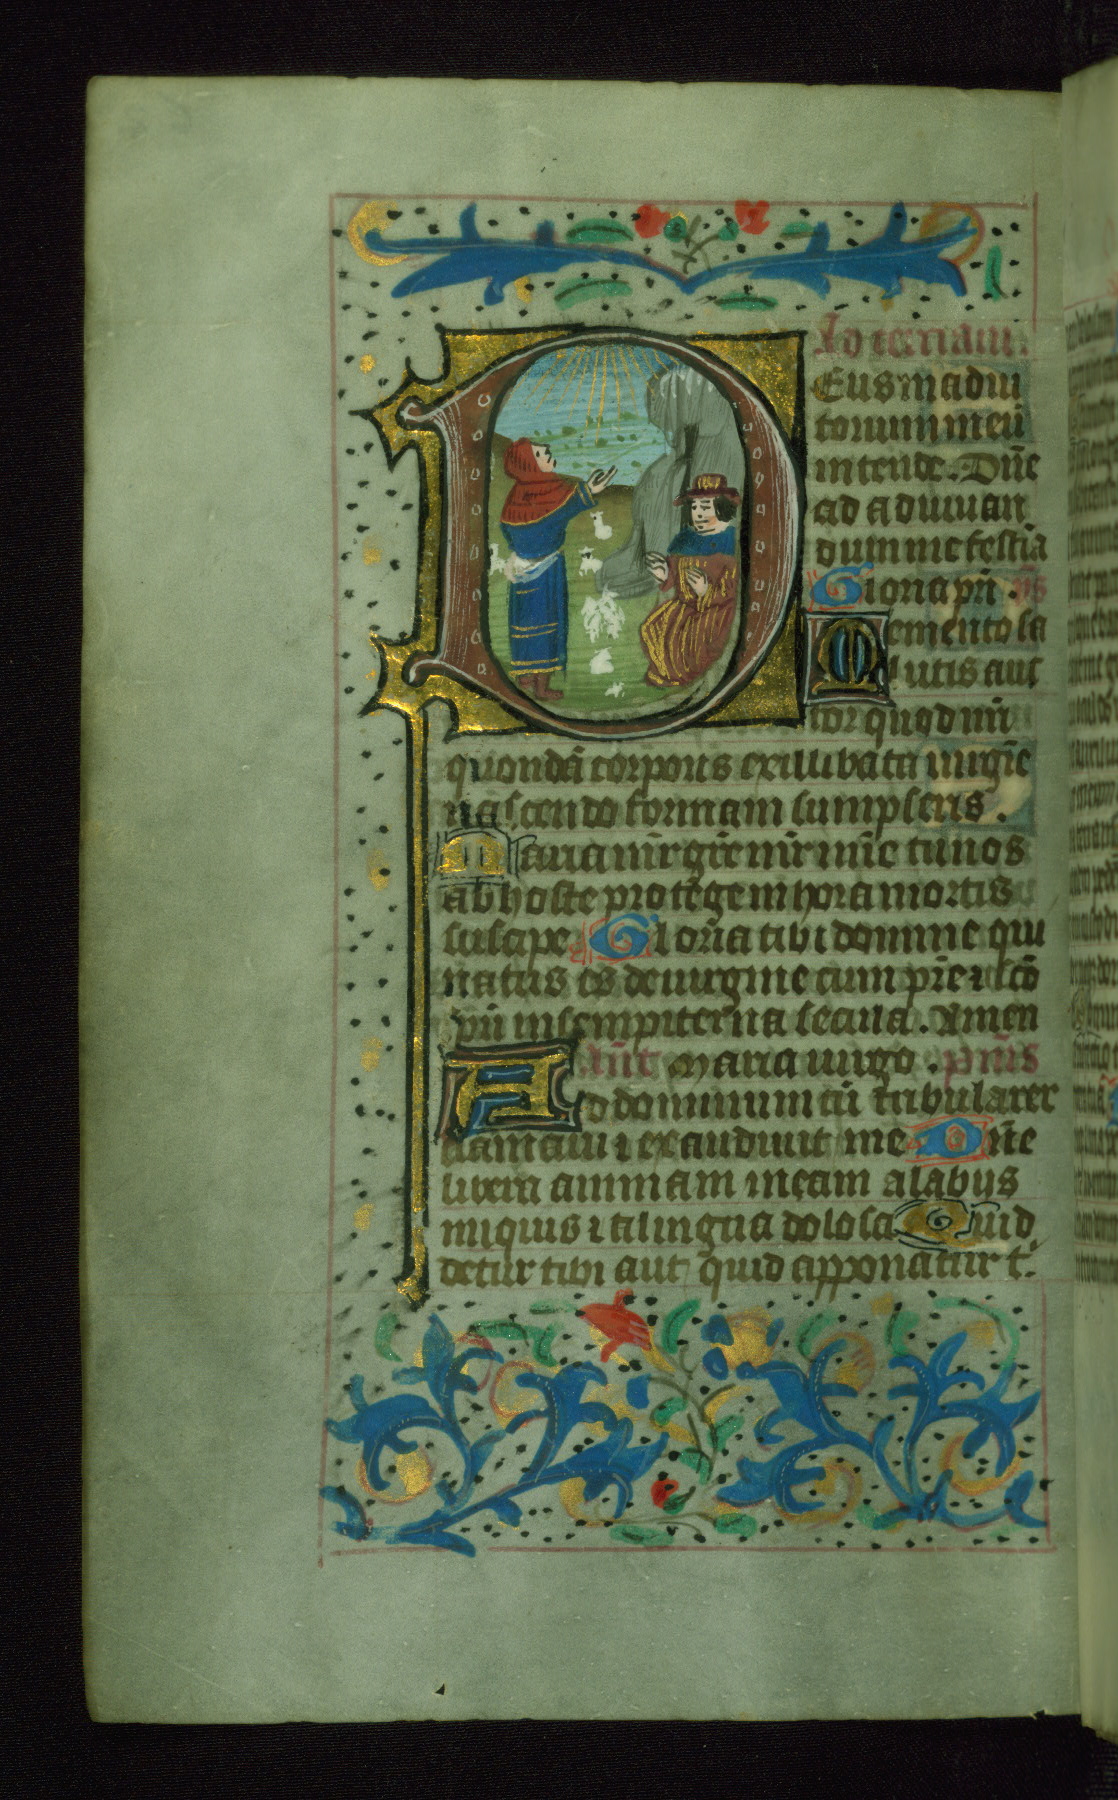 Ad terciam.
Eus in adiu
torium meū
intende. Dn̄e
ad adiuuan
dum me festīa
Gloria pr̄i. ẏs
Memento sa
lutis auc
tor quod nr̄i
quondā corporis ex illibata uirgīe
nascendo formam sumpseris.
Maria mr̄ grīe mr̄ mīe tu nos
ab hoste protege in hora mortis
suscipe Gloria tibi domine qui
natus es de uirgine cum pr̄e ⁊ sc̄o
sp̄u in sempiterna secula. Amen
Añt Maria uirgo. p̄mis
Ad dominum cū tribularer
clamaui ⁊ exaudiuit me Dn̄e
libera animam meam a labiis
iniquis ⁊ a lingua dolosa Quid
detur tibi aut quid apponatur t̄